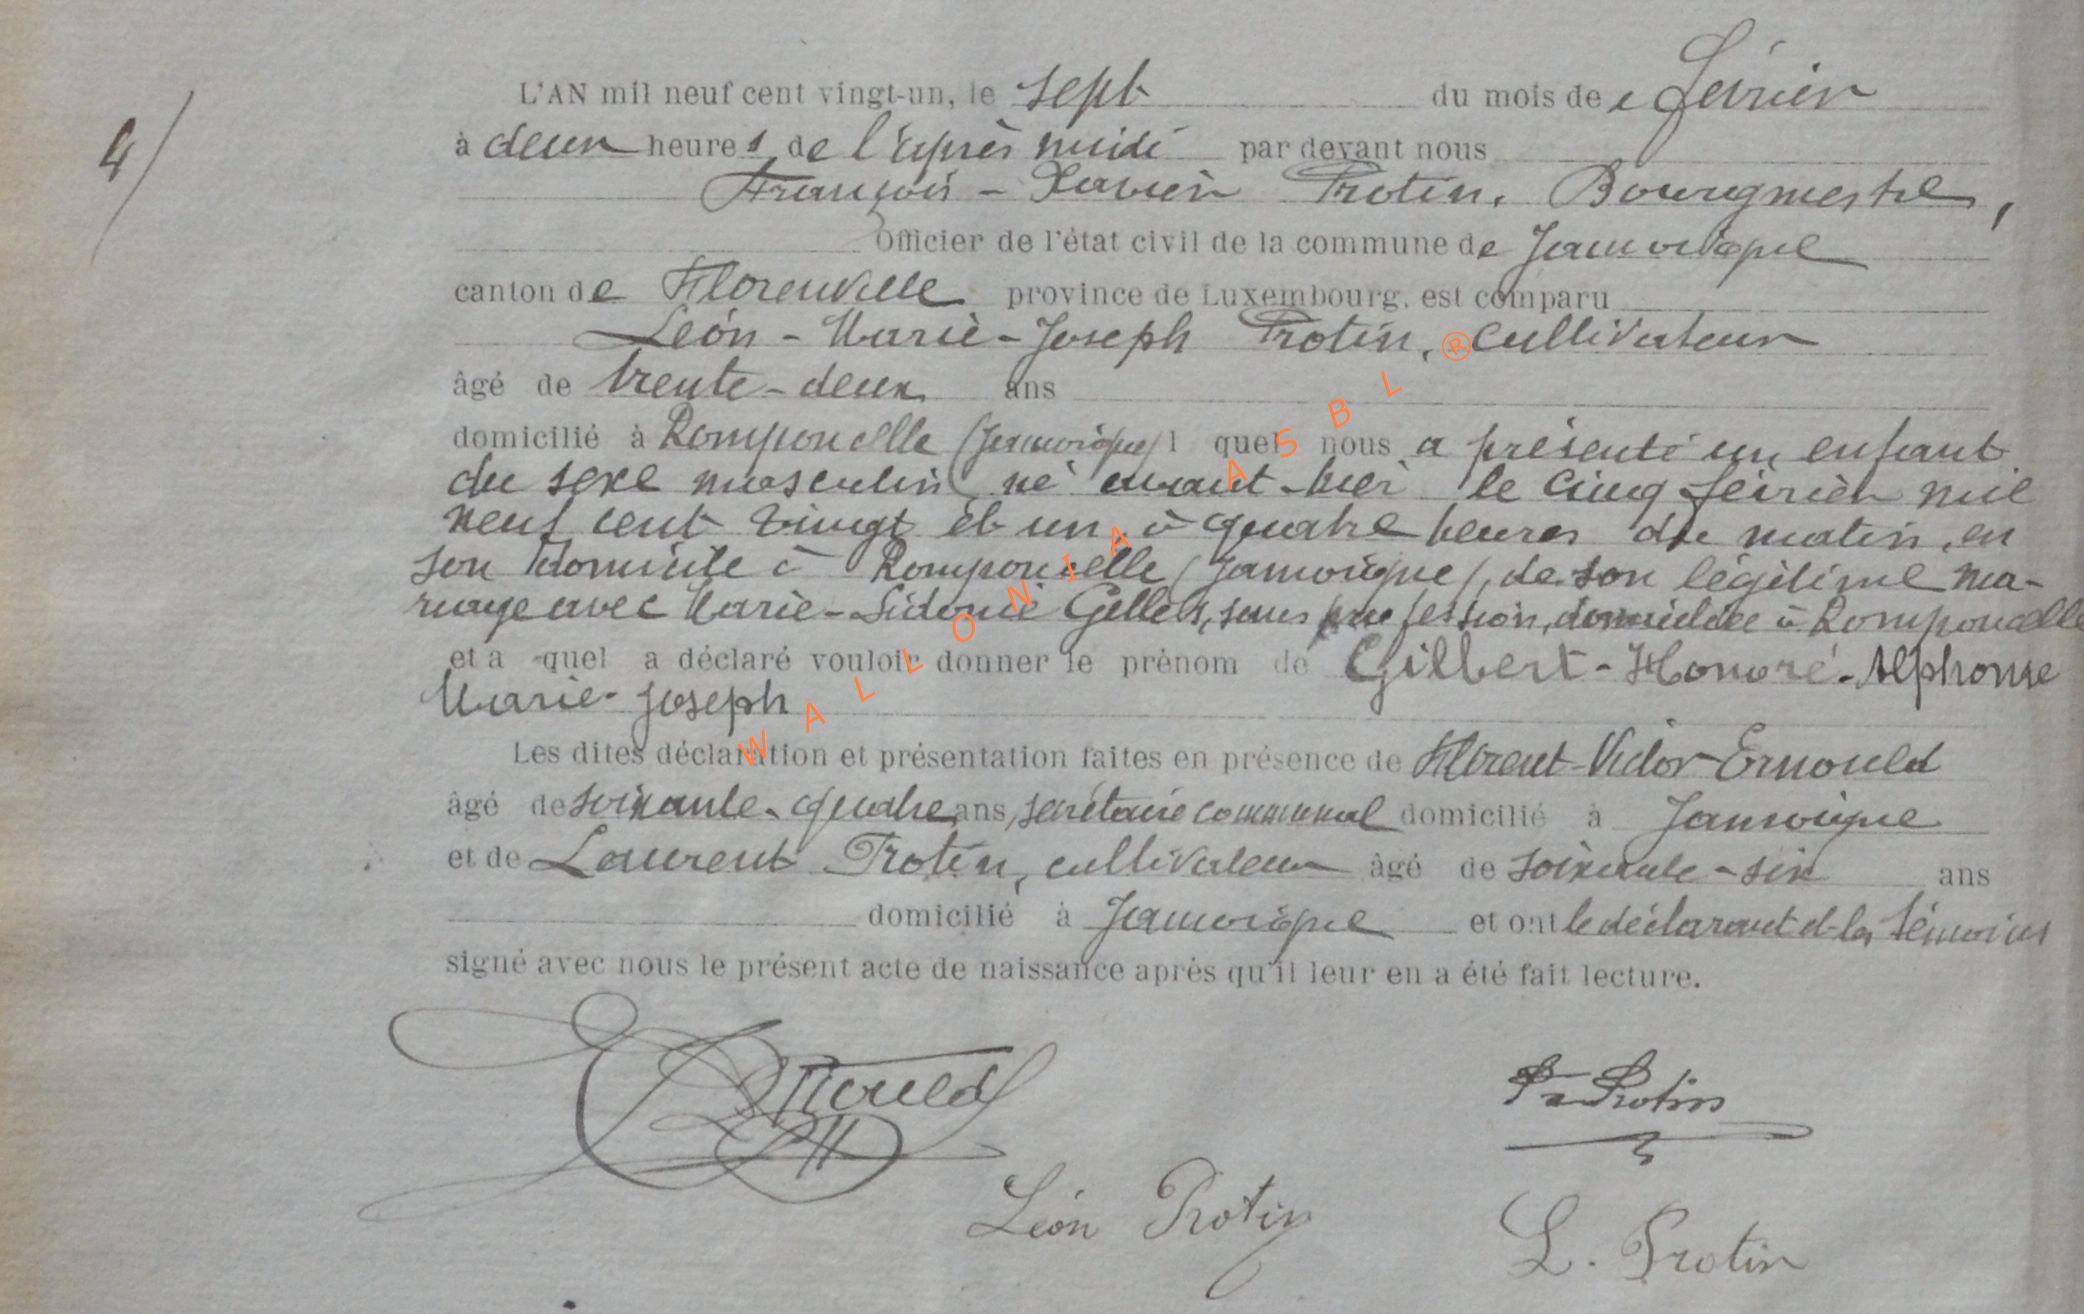 L'AN mil neuf cent vingt-un, le sept du mois de Février
4/
à deux heures de l'après midi par devant nous
François - Xavier Protin, Bourgmestre,
Officier de l'état civil de la commune de Jamoigne
canton de Florenville province de Luxembourg, est comparu
Léon - Marie - Joseph Protin, cultivateur
âgé de trente - deux ans
domicilié à Romponcelle (Jamoigne) l quel nous a présenté un enfant
du sexe masculin, né avant-hier le cinq février mil
neuf cent vingt et un à quatre heures du matin, en
son domicile à Romponcelle (Jamoigne), de son légitime ma-
riage avec Marie - Sidonie Gillet, sans profession, domiciliée à Romponcelle
et a quel a déclaré vouloir donner le prénom de Gilbert - Honoré - Alphonse
Marie - Joseph
Les dites déclaration et présentation faites en présence de Florent - Victor Ernould
âgé de soixante - quatre ans, secrétaire communal domicilié à Jamoigne
et de Laurent Protin, cultivateur âgé de soixante - six ans
domicilié à Jamoigne et ont le déclarant et les témoins
signé avec nous le présent acte de naissance après qu'il leur en a été fait lecture.
WALLONIA ASBL ®
Ernould
Fx Protin
Léon Protin
L. Protin